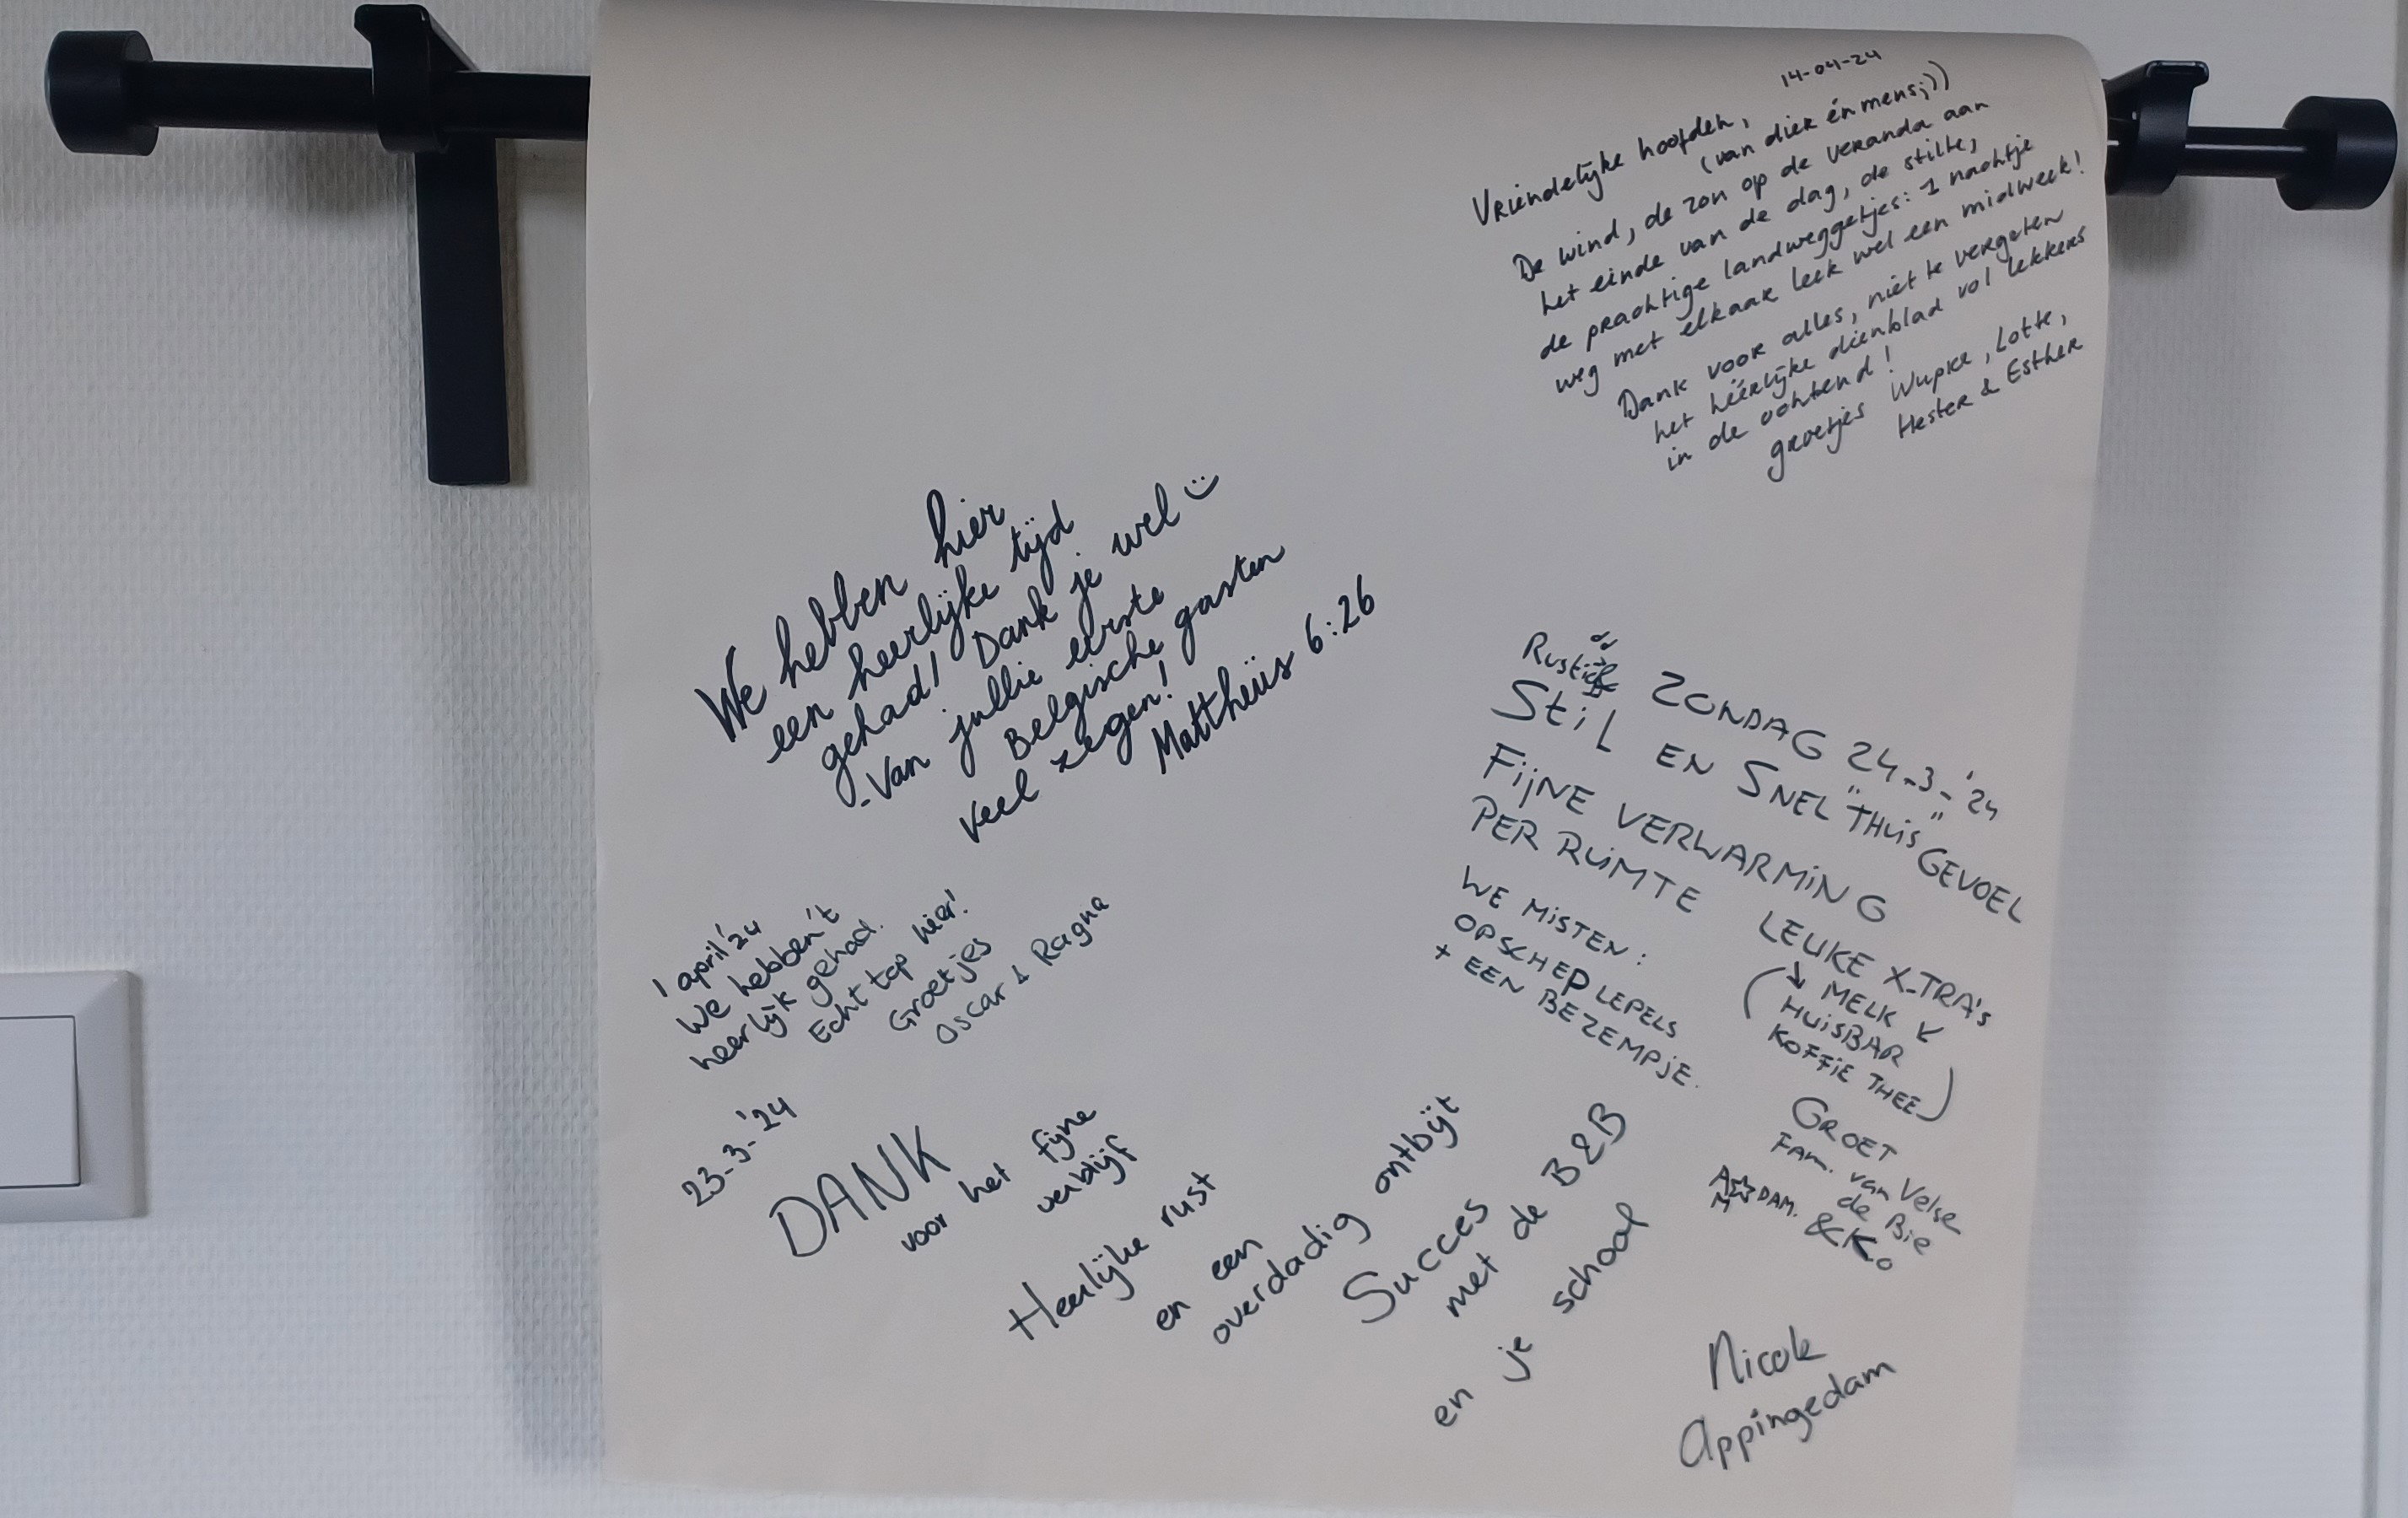 14-04-24
Vriendelijke hoofden,
(van dier én mens;))
De wind, de zon op de veranda aan
het einde van de dag, de stilte,
de prachtige landweggetjes: 1 nachtje
weg met elkaar leek wel een midweek!
Dank voor alles, niet te vergeten
het héérlijke dienblad vol lekkers
in de ochtend!
groetjes Wupke, Lotte,
Hester & Esther
We hebben hier
een heerlijke tijd
gehad! Dank je wel
-Van jullie eerste
Belgische gasten
Veel zegen!
Mattheüs 6:26
ZONDAG 24-3-'24
STIL EN SNEL "THUIS" GEVOEL
FIJNE VERWARMING
PER RUIMTE
LEUKE X-TRA'S
MELK
HUISBAR
KOFFIE THEE)
WE MISTEN:
OPSCHEPLEPELS
+ EEN BEZEMPJE.
GROET
FAM. van Velse
de Bie
& Ko
1 april '24
We hebben 't
heerlijk gehad.
Echt top hier!
Groetjes
Oscar & Ragna
23-3-'24
DANK
voor het fijne
verblijf
Heerlijke rust
en een
overdadig ontbijt
Succes
met de B&B
en je school
Nicole
Appingedam